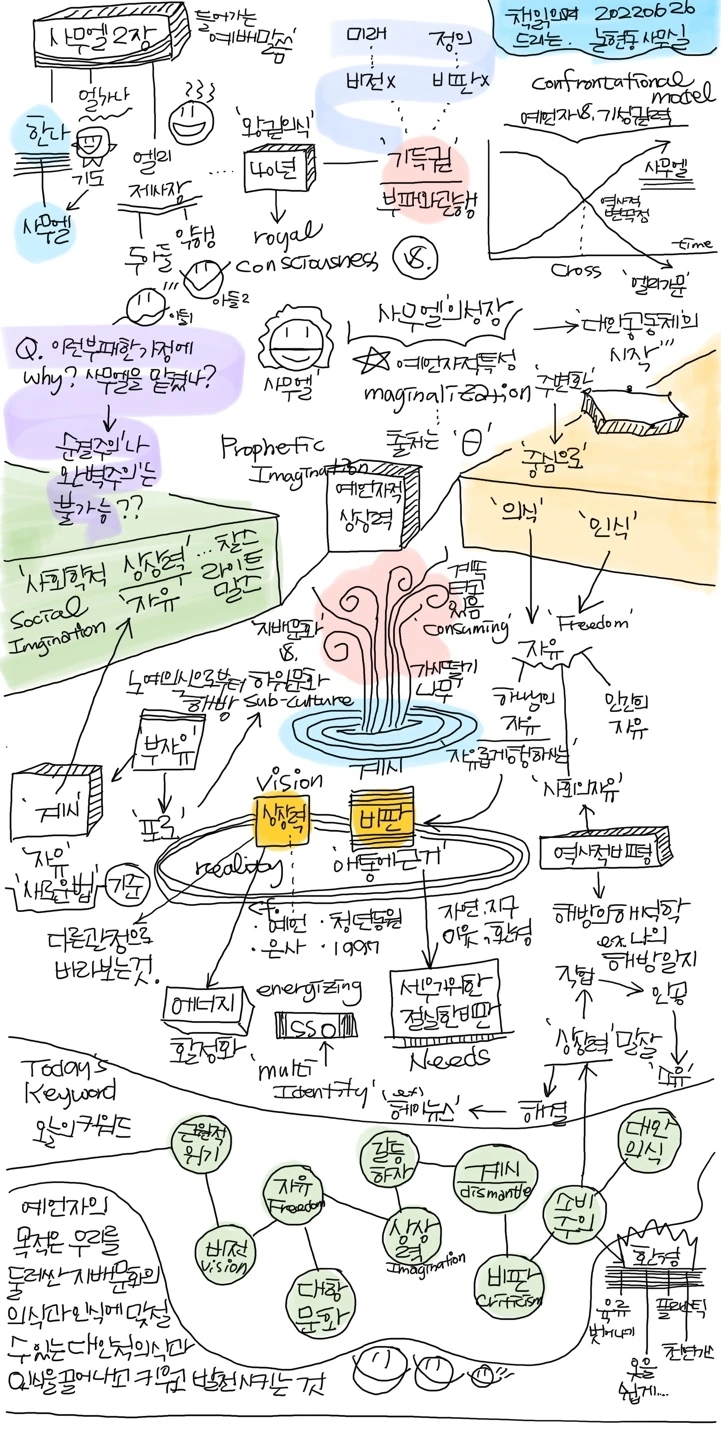 사무엘2장
들어가는
예배말씀
미래
정의
비전x
비판x
책읽으며 20220626
드리는. 논현동사무실
confrontational
model
예언자 vs. 기성권력
한나
엘가나
기도
사무엘
엘리
제사장
두아들
악행
아들1
아들2
'왕권의식'
40년
royal
consciousness
vs.
'기득권'
부패와관행
사무엘
역사적
변곡점
time
cross
'엘리가문'
Q. 이런부패한가정에
why? 사무엘을 맡겼나?
순결주의'나
완벽주의'는
불가능??
'사무엘'
사무엘'의성장
예언자적특성
maginalization
출처는
'대안공동체'의
시작'''
'주변화'
'중심으로'
Prophetic
Imagination
예언자적
상상력
'의식'
'인식'
'사회학적 상상력'... 찰스
라이트
밀스
'자유'
Social
Imgination
'지배문화'
vs.
하위문화
sub-culture
노예의식으로부터
해방
계속
타고
있음
'consuming'
가시떨기
나무
계시
'Freedom'
자유
하나님의
자유
인간의
자유
자유롭게행하시는
'사회의자유'
'부자유'
'포로'
'계시'
'자유'
'새로운법'
기준
vision
상상력
비판
reality
'애통에근거'
역사적비평
다른관점으로
바라보는것.
cf.
·예언
·은사
·청년동원
·1997
자연.지구
이웃.환경
해방의해석학
ex.나의
해방일지
직접
인공
에너지
활성화
energizing
SSO
'multi
Identity'
세우기위한
절실한비판
Needs
'상상력'말살
해결
ex)
'헤이뉴스'
Today's
Keyword
오늘의키워드
근원적
위기
비전
vision
자유
Freedom
대항
문화
갈등
하자
상상
력
Imagination
계시
dismantle
비판
Criticism
소비
주의
대안
의식
환경
육류
벗어나기
플라스틱
옷을
쉽게...
예언자의
목적은 우리를
둘러싼 지배문화의
의식과인식에 맞설
수있는 대안적의식과
인식을끌어내고 키우고 발전시키는 것